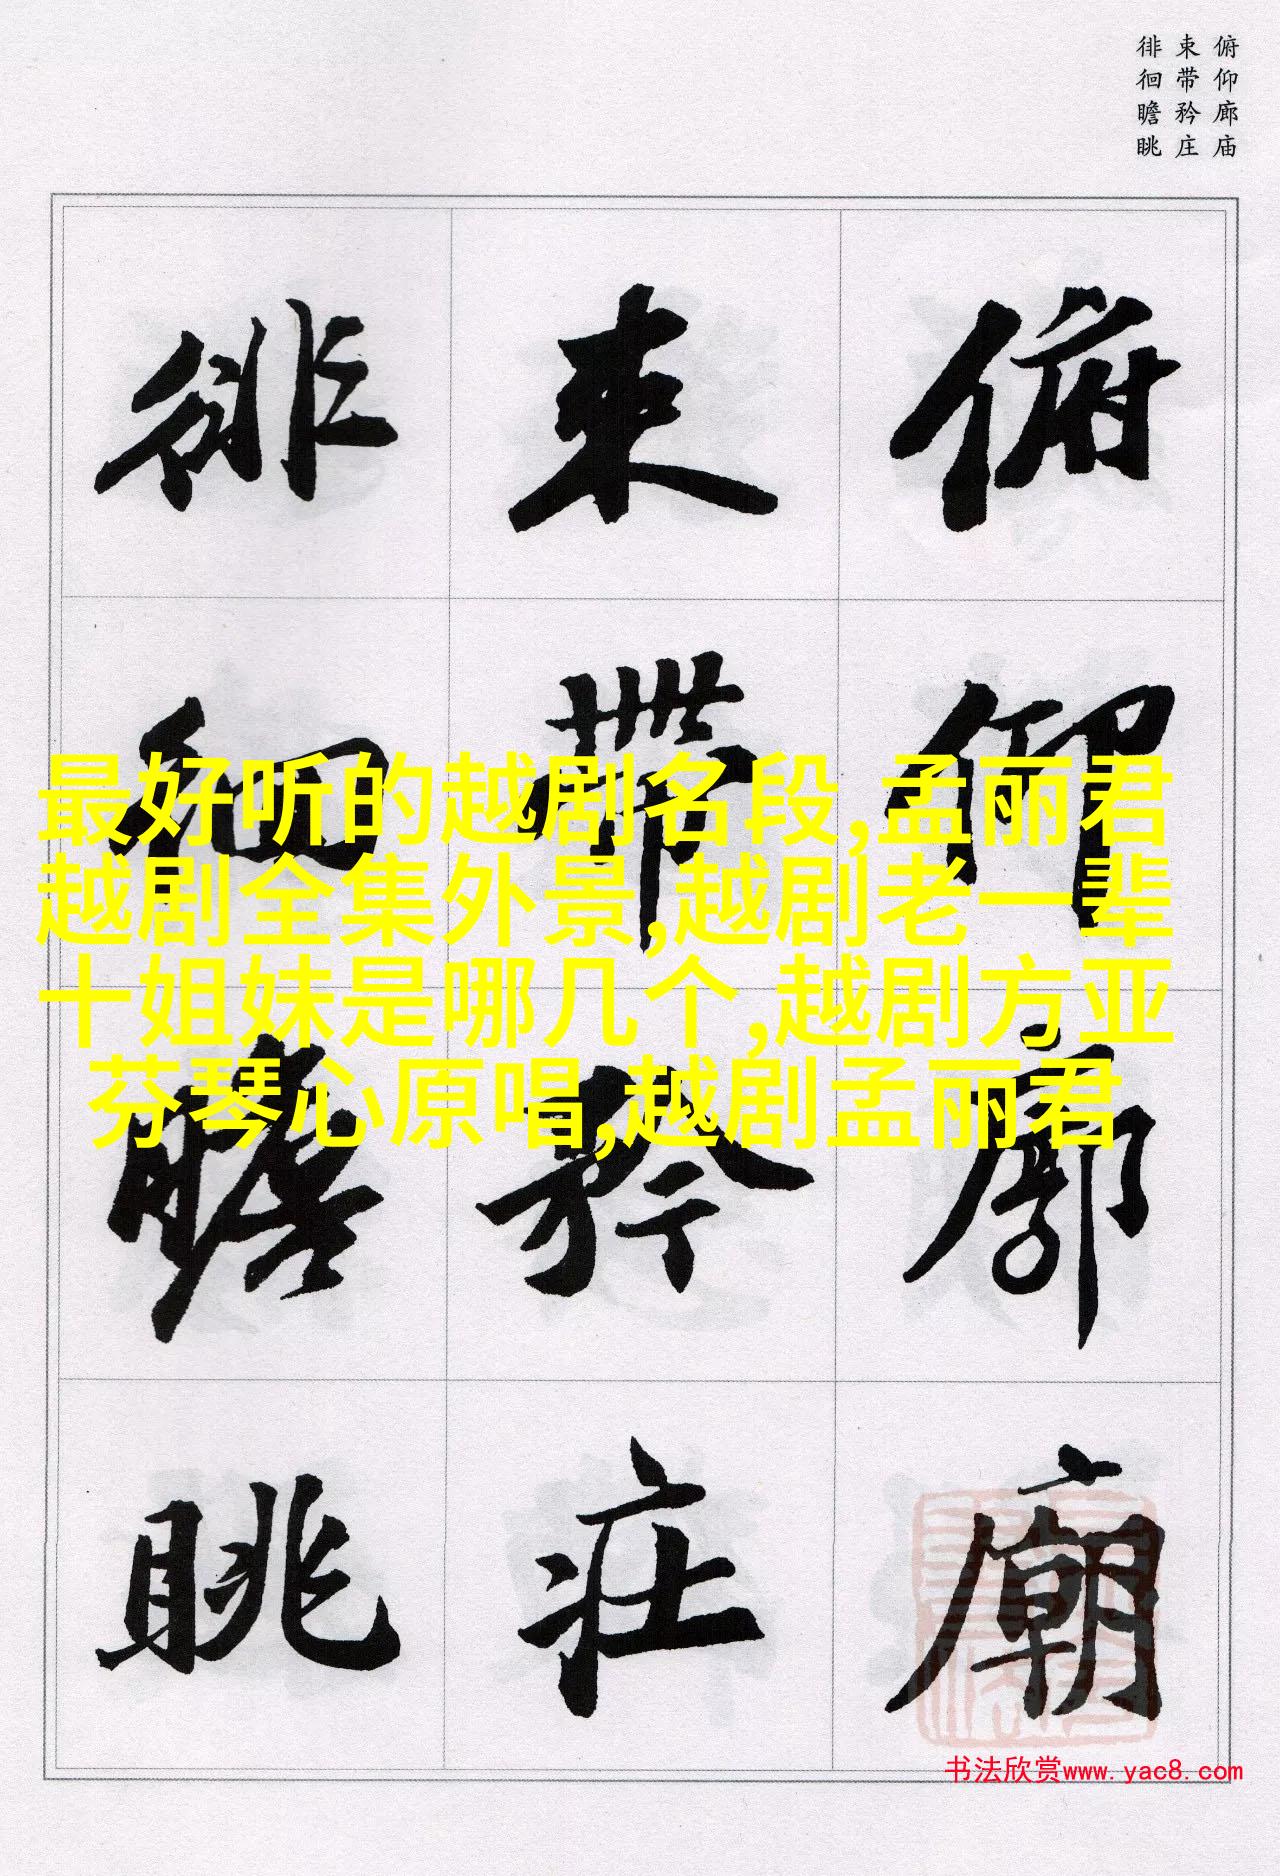 俯仰廊庙
束带矜庄
徘徊瞻眺
俯仰廊廟
束帶矜莊
徘徊瞻眺
最好听的越剧名段,孟丽君
越剧全集外景,越剧老一辈
十姐妹是哪几个,越剧方亚
芬琴心原唱,越剧孟丽君
书法欣赏www.yac8.com